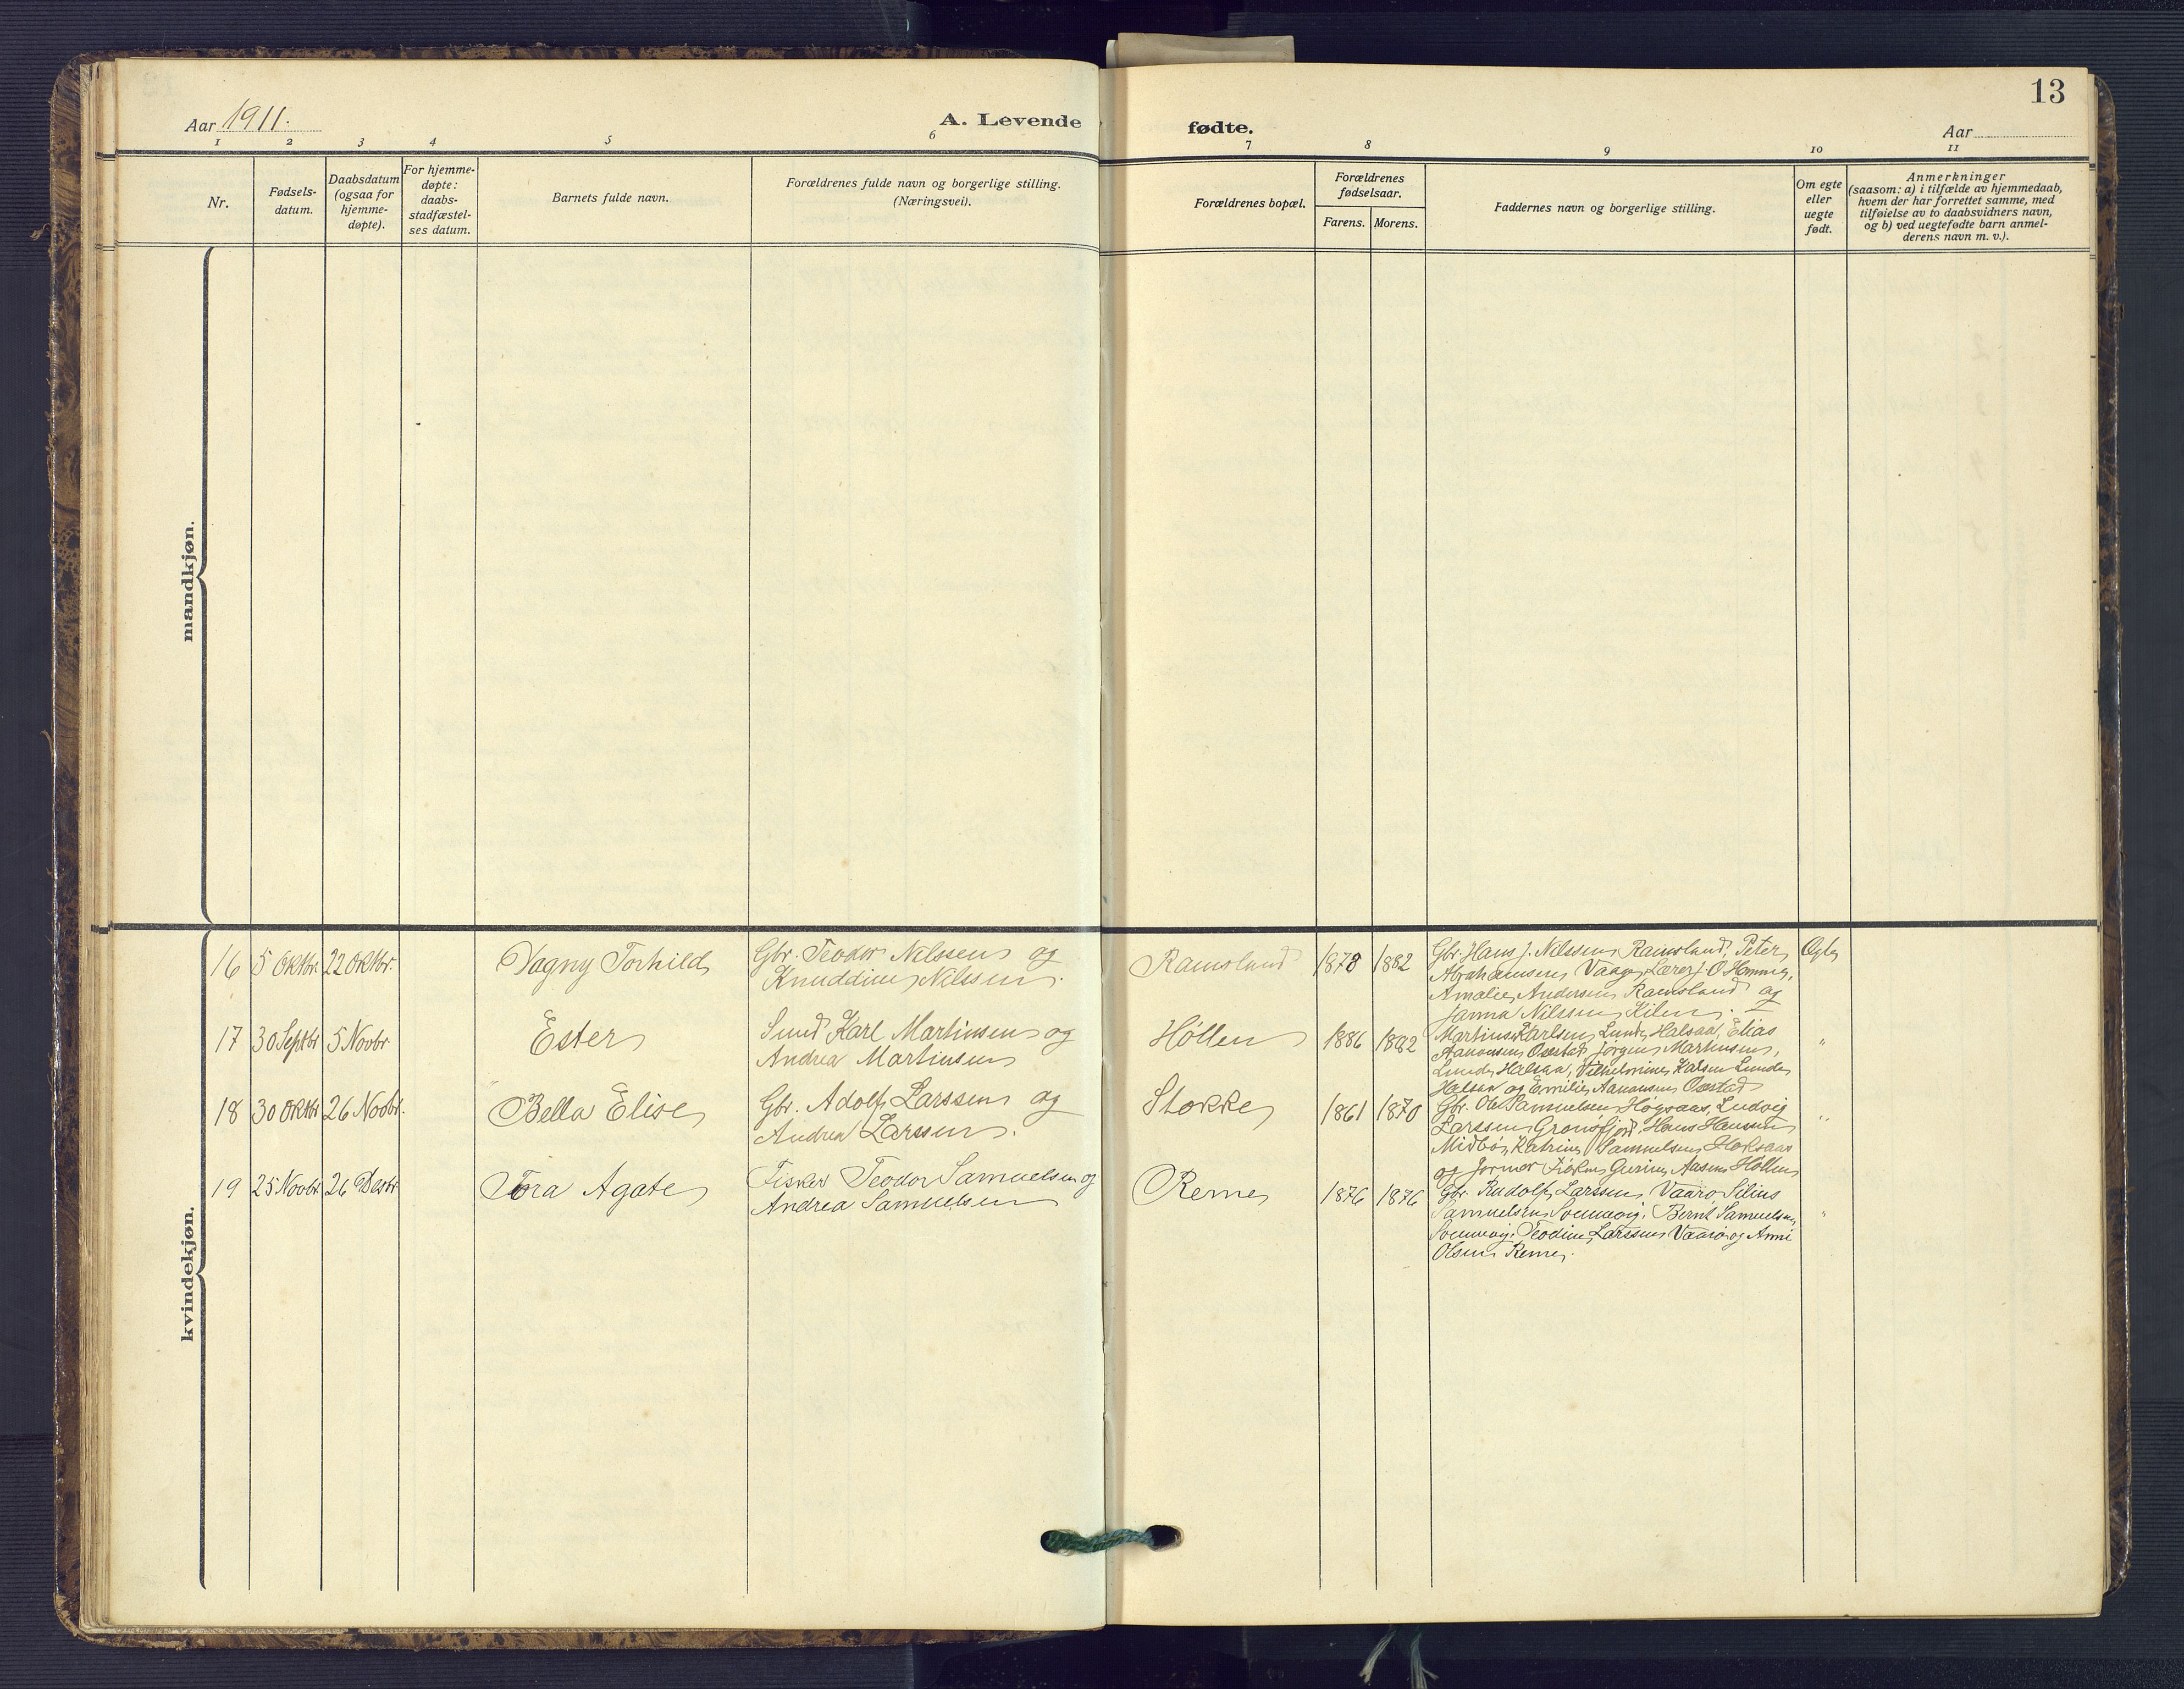 13
Aar 1911. A. Levende fødte. Aar
1 2 3 4 5 6 7 8 9 10 11
Nr.
Fødsels-
datum.
Daabsdatum
(ogsaa for
hjemme-
døpte).
For hjemme-
døpte:
daabs-
stadfæstel-
ses datum.
Barnets fulde navn.
Forældrenes fulde navn og borgerlige stilling.
(Næringsvei).
Forældrenes bopæl.
Forældrenes
fødselsaar.
Farens. Morens.
Faddernes navn og borgerlige stilling.
Om egte
eller
uegte
født.
Anmerkninger
(saasom: a) i tilfælde av hjemmedaab,
hvem der har forrettet samme, med
tilføielse av to daabsvidners navn,
og b) ved uegtefødte barn anmel-
derens navn m. v.).
mandkjøn.
kvindekjøn.
16 5 Oktbr. 22 Oktbr. Dagny Torhild
Gbr. Teodor Nilssen og
Knuddine Nilssen.
Ramsland 1878 1882
Gbr. Hans J. Nilssen, Ramsland, Peter
Abrahamsen, Vaage, Lærer J. O. Homme,
Amalie Andersen Ramsland og
Janna Nilssen Kilen.
Egte
17 30 Septbr 5 Novbr. Ester
Smed Karl Martinsen og
Andrea Martinsen
Høllen 1886 1882
Martinus Karlsen, Lunde, Halsaa, Elias
Aanonsen Oxestad, Jørgen Martinsen,
Lunde, Halsaa, Vilhelmine Kalsen Lunde
Halsaa og Emilie Aanonsen Oxestad
"
18 30 Oktbr 26 Novbr. Bella Elise
Gbr. Adolf Larssen og
Andrea Larssen.
Stokke 1861 1870
Gbr. Ole Samuelsen Høgsaas, Ludvig
Larssen, Grønsfjord, Hans Hanssen
Midbø, Katrine Samuelsen
og Gurine Aasen Høllen
"
19 25 Novbr. 26 Desbr Tora Agate
Fisker Teodor Samuelsen og
Andrea Samuelsen
Reme 1876 1876
Gbr. Rudolf Larssen, Vaarø, Silius
Samuelsen Svennevig, Bernt Samuelsen,
Svennevig, Teodine Larssen Vaarø og Anni
Olsen Reme.
"